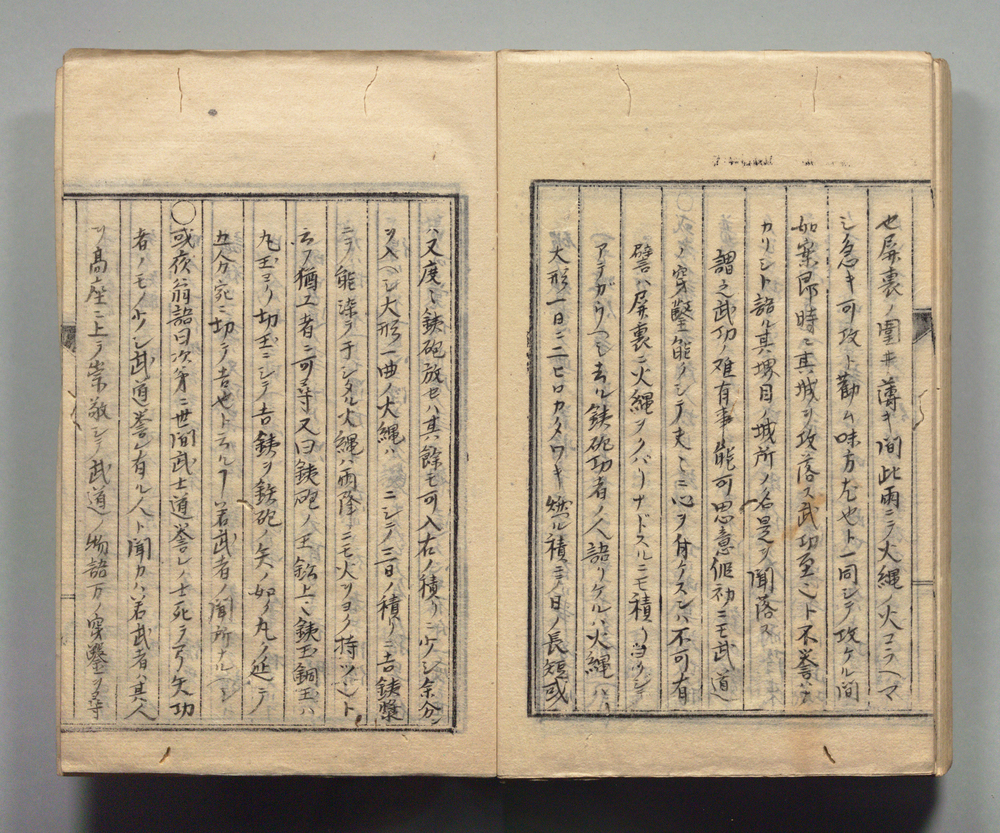 也屏裏ノ圍井薄キ間此雨ニテ火縄ノ火コラヘマ
シ急キ可攻ト勸ム味方尤也ト一同シテ攻ケル間
如案即時ニ其城ヲ攻落ス武功至ヘト不誉ハナ
カリシト語ル其堺目ノ城所ノ名是ヲ聞落ス
謂之武功ノ难有事能可思意仮初ニモ武道
ノ穿鑿能ノシテ丈ニ心ヲ付ケスンハ不可有
譬ハ屏裏ニ火縄ヲクバリナドスルニモ積リ
アテガウヘシ去ル鉄砲功者ノ人語リケルハ火縄ハ
大形一日ニ二ヒロカタワキ燃ル積ニテ日ノ長短或
ハ又度々鉄砲放セハ其餘モ可入右ノ積リニ少シ余分
ヲ入ヘシ大形一曲ノ大縄ハ二シテ三日ノ積リニ吉鉄漿
ニテ能染テ干シタル火縄ハ雨降ニモ火ツヨク持ツヘント
云フ猶工者ニ可尋又曰鉄砲ノ玉鉛上々鉄玉銅玉ハ
丸玉ヨリ切玉ニシテ吉鉄ヲ鉄砲ノ矢ノ如ク丸ノ延テ
五人分宛ニ切テ吉也ト云ルフ若武者ノ聞所ナルヘシ
○或夜翁語曰次第ニ世間武士道誉レノ士死テアリ矢功
者ノモノ少シ武道誉レ有ル人ト聞カハ若武者ハ其人
ヲ高座ニ上テ崇敬シテ武道ノ物語万ノ穿鑿ヲ尋